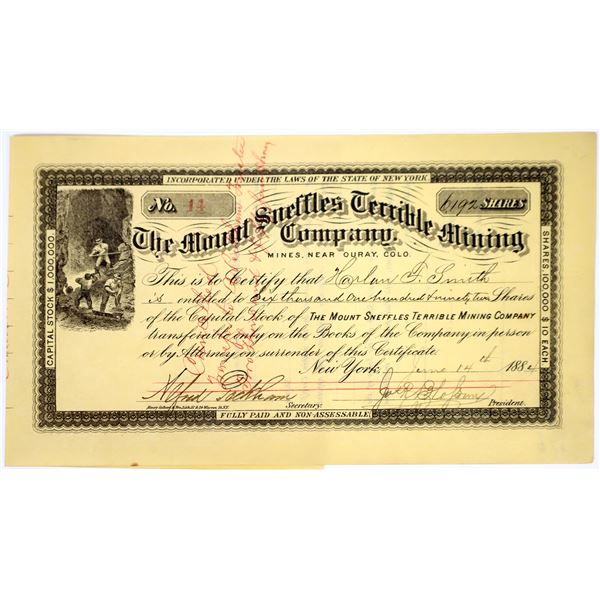 INCORPORATED UNDER THE LAWS OF THE STATE OF NEW YORK
No. 14
6192 SHARES
The Mount Sneffles Terrible Mining
Company.
MINES, NEAR OURAY, COLO.
CAPITAL STOCK $1,000,000.
SHARES 100,000 $10 EACH
This is to Certify that Harlan F. Smith
is entitled to Six thousand One hundred & ninety two Shares
of the Capital Stock of THE MOUNT SNEFFLES TERRIBLE MINING COMPANY
transferable only on the Books of the Company in person
or by Attorney on surrender of this Certificate.
New York, June 14th 1884
Secretary.
President.
FULLY PAID AND NON-ASSESSABLE.